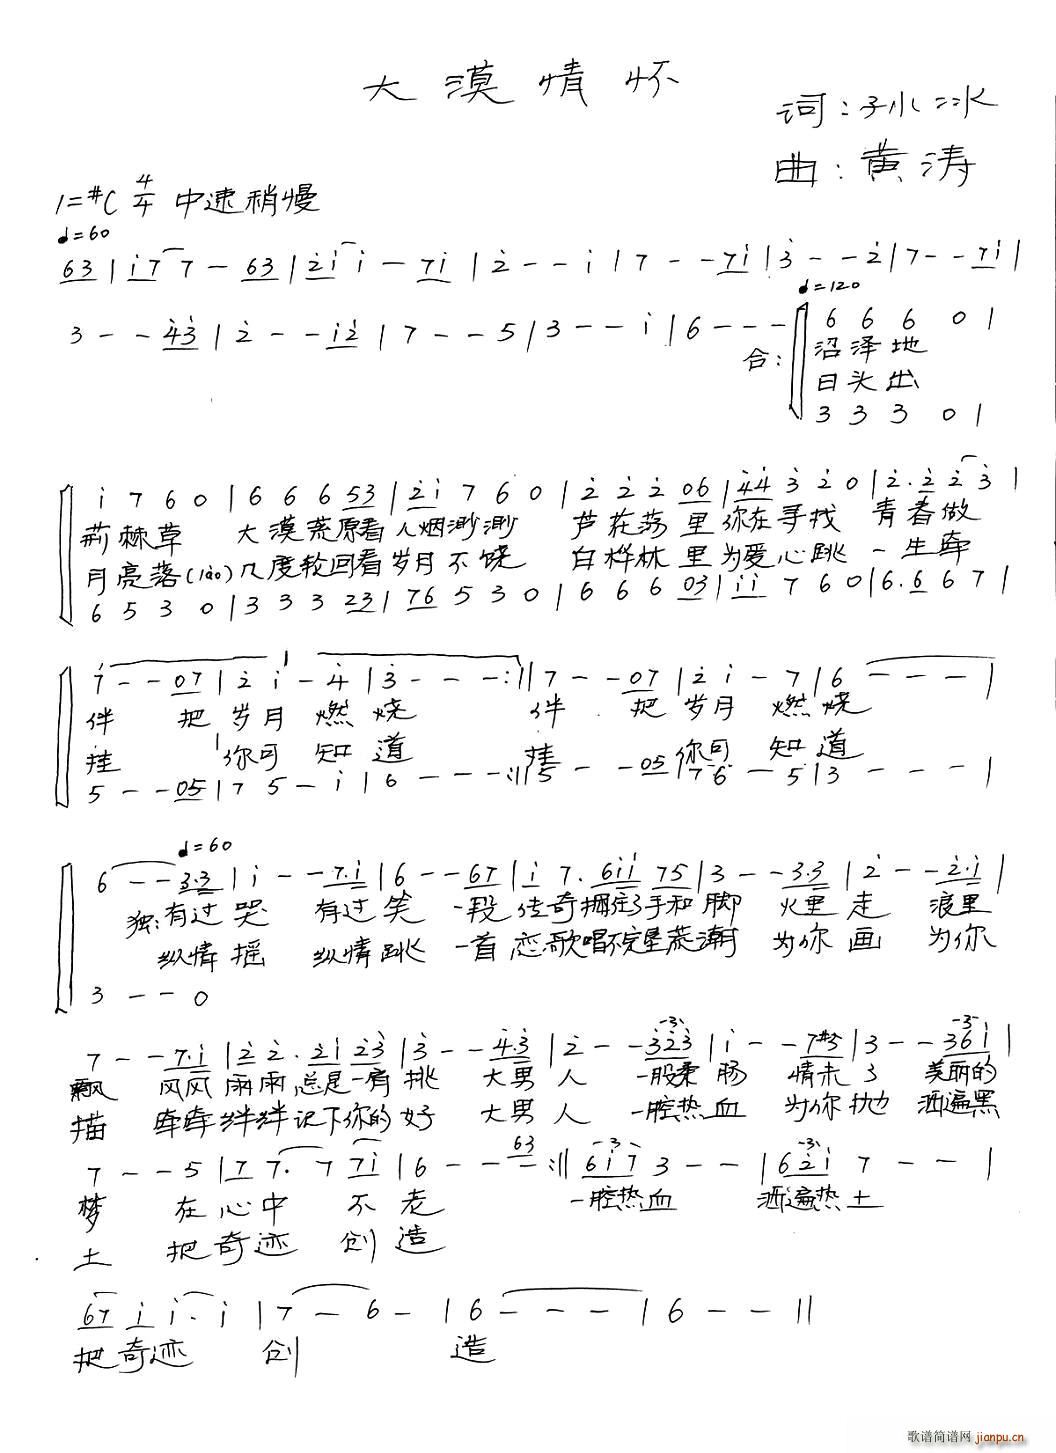 大漠情怀
词：孙冰冰
曲：黄涛
1=#C 4/4 中速稍慢
♩=60
63 | i7 7 - 63 | 2i i i - 7i | 2 - - i | 7 - - 7i | 3 - - 2 | 7 - - 7i |
♩=120
3 - - 43 | 2 - - i2 | 7 - - 5 | 3 - - i | 6 - - - 合： 6 6 6 0 |
沼泽地
日头出
3 3 3 0 |
i 7 6 0 | 6 6 6 53 | 2i 7 6 0 | 2 2 2 06 | 44 3 2 0 | 2. 2 2 3 |
荊棘草 大漠荒原看人烟渺渺 芦花荡里你在寻找 青春做
月亮落 几度轮回看岁月不饶 白桦林里为爱心跳 一生牵
6 5 3 0 | 3 3 3 23 | 76 5 3 0 | 6 6 6 03 | ii 7 6 0 | 6. 6 6 7 |
7 - - 07 | 2 i - 4 | 3 - - - :|| 7 - - 07 | 2 i - 7 | 6 - - - |
伴 把岁月燃烧 伴 把岁月燃烧
挂 你可知道 挂 你可知道
5 - - 05 | 7 5 - i | 6 - - - :|| 5 - - 05 | 7 6 - 5 | 3 - - - |
♩=60
6 - - 3.3 | i - - 7.i | 6 - - 67 | i 7. 6ii 75 | 3 - - 3.3 | 2 - - 2.i |
独：有过哭 有过笑 一段传奇拥住了手和脚 火里走 浪里
纵情摇 纵情跳 一首恋歌唱不完星荒潮 为你画 为你
3 - - 0
7 - - 7.i | 2 2. 2i 23 | 3 - - 4.3 | 2 - - 323 | i - - 7#5 | 3 - - 36i |
飘 风风雨雨总是一肩挑 大男人 一股柔肠 情未了 美丽的
描 牵牵绊绊记下你的好 大男人 一腔热血 为你抛 洒遍黑
7 - - 5 | 7 7. 7 7i | 6 - - - 63 :|| 6i7 3 - - | 62i 7 - - |
梦 在心中不老 一腔热血 洒遍热土
土 把奇迹创造
67 i i. i | 7 - 6 - | 6 - - - | 6 - - ||
把奇迹 创 造
歌谱简谱网 jianpu.cn